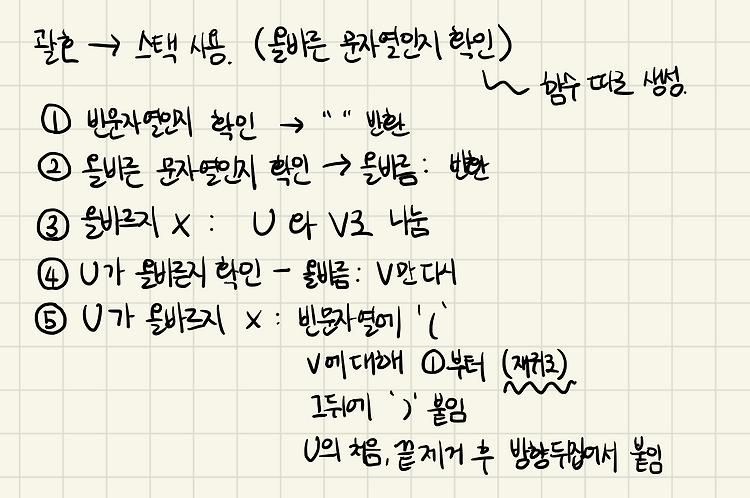 괄호 → 스택 사용. (올바른 문자열인지 확인)
함수 따로 생성.
① 빈문자열인지 확인 → " " 반환
② 올바른 문자열인지 확인 → 올바름 : 반환
③ 올바르지 X : U 와 V로 나눔
④ U가 올바른지 확인 - 올바름 : V만 다시
⑤ U가 올바르지 X : 빈문자열에 '('
V에 대해 ①부터 (재귀로)
그뒤에 ')' 붙임
U의 처음, 끝 제거 후 방향뒤집어서 붙임